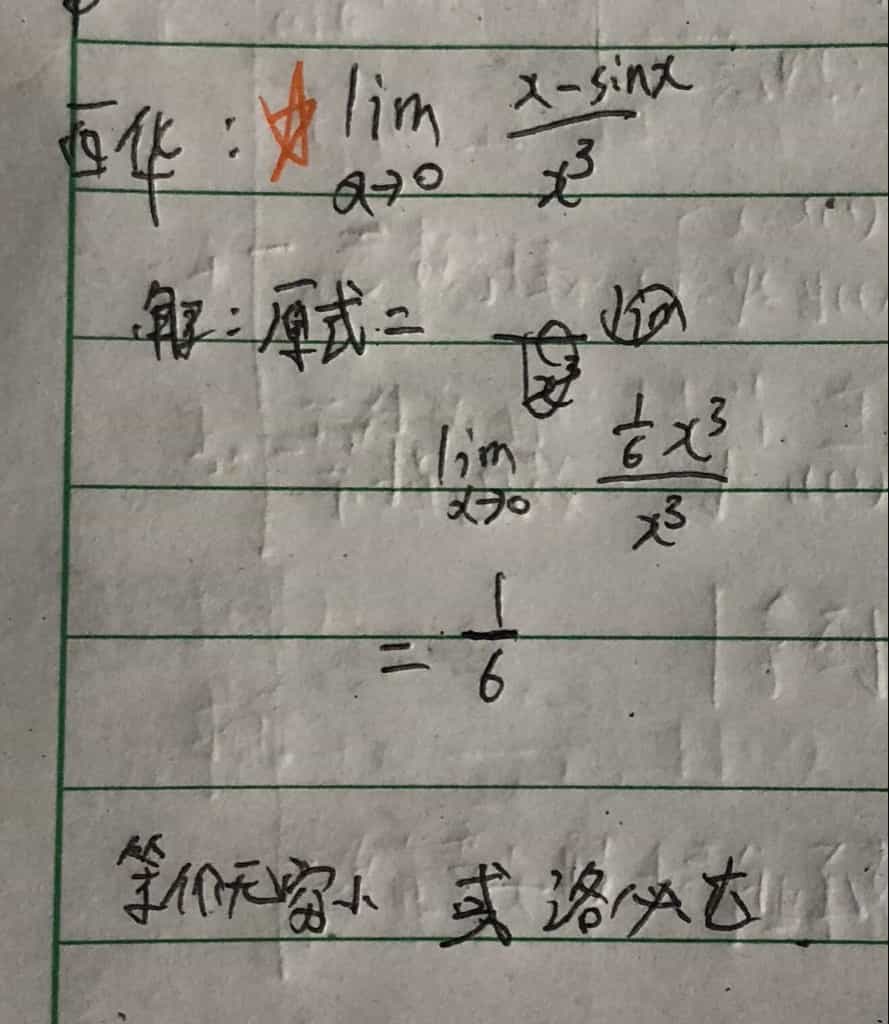 ☆ lim x→0 x-sinx / x³
解：原式=
lim x→0 (1/6 x³) / x³
= 1/6
等价无穷小 或 洛必达